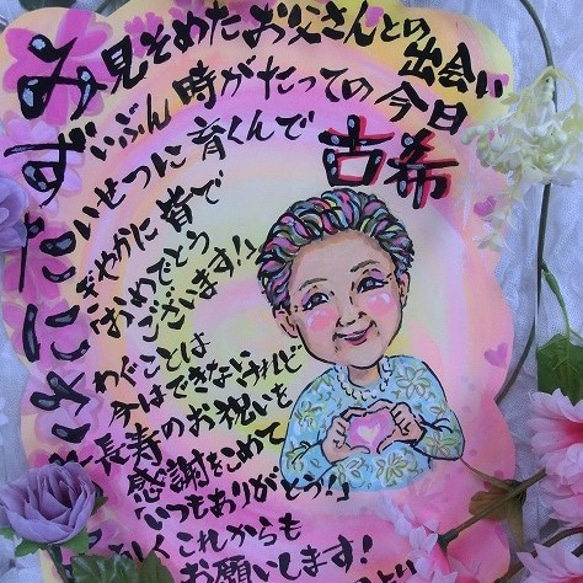 み見そめたお父さんとの出会い
ずいぶん時がたっての今日
古希
たいせつに育くんで
にぎやかに皆で
「おめでとう
ございます!」
さわぐことは
今はできないけれど
長寿のお祝いを
感謝をこめて
「いつもありがとう!」
しくこれからも
お願いします!